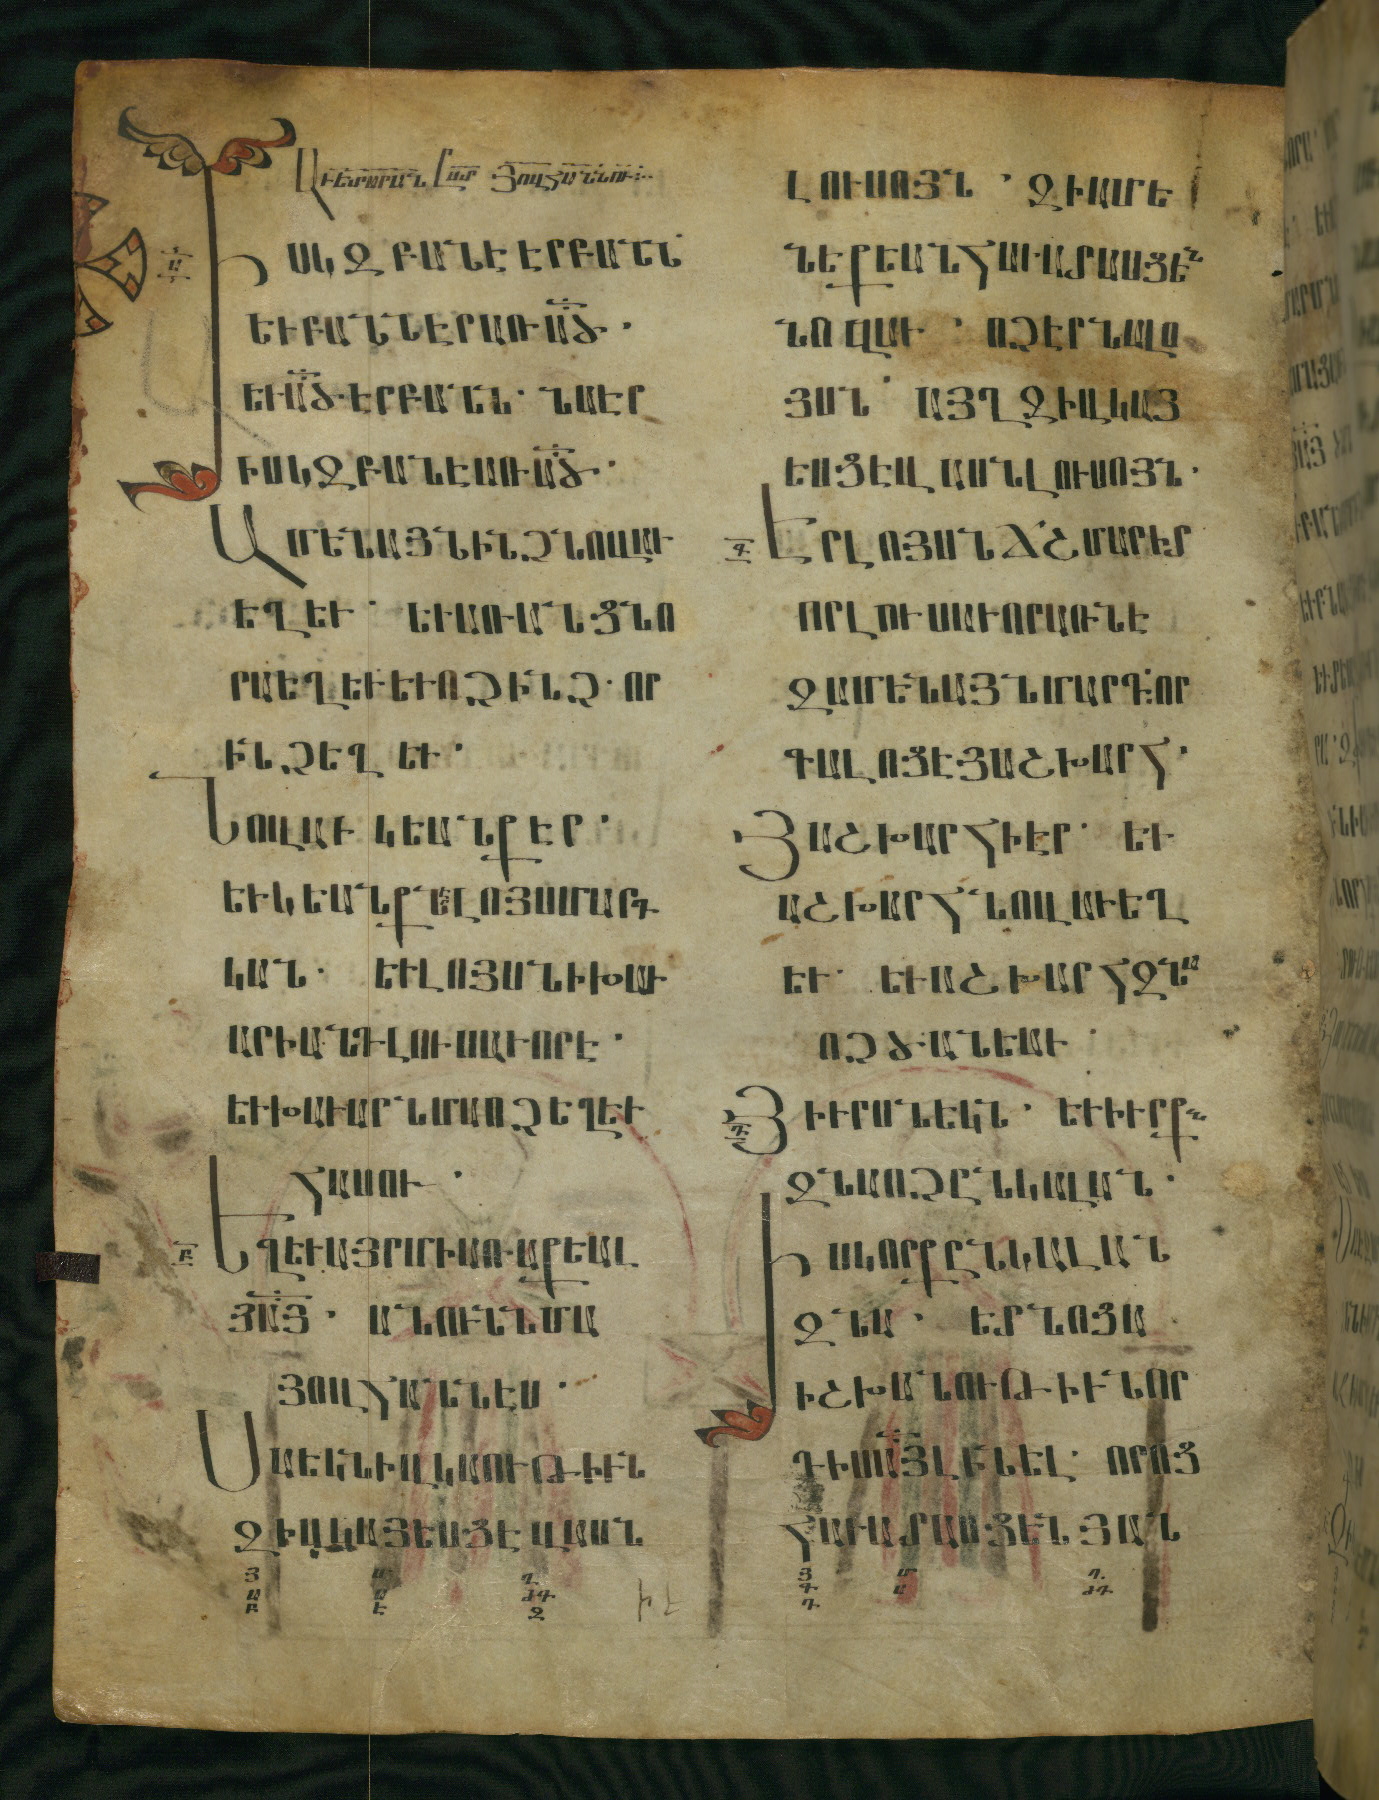 Աւետարան Ըստ Յովհաննու
ԻՍԿԶԲԱՆԷ ԷՐ ԲԱՆՆ
ԵՒ ԲԱՆՆ ԷՐ ԱՌ ԱԾ.
ԵՒ ԱԾ ԷՐ ԲԱՆՆ. ՆԱ ԷՐ
Ի ՍԿԶԲԱՆԷ ԱՌ ԱԾ.
ԱՄԵՆԱՅՆ ԻՆՉ ՆՈՎԱՒ
ԵՂԵՒ. ԵՒ ԱՌԱՆՑ ՆՈ
ՐԱ ԵՂԵՒ ԵՒ ՈՉ ԻՆՉ. ՈՐ
ԻՆՉ ԵՂԵՒ.
ՆՈՎԱՒ ԿԵԱՆՔ ԷՐ.
ԵՒ ԿԵԱՆՔՆ ԷՐ ԼՈՅՍ ՄԱՐԴ
ԿԱՆ. ԵՒ ԼՈՅՍՆ Ի ԽԱՒ
ԱՐԻ ԱՆԴ ԼՈՒՍԱՒՈՐԷ.
ԵՒ ԽԱՒԱՐ ՆՄԱ ՈՉ ԵՂԵՒ
ՀԱՍՈՒ.
ԵՂԵՒ ԱՅՐ ՄԻ ԱՌԱՔԵԱԼ
ՅԱՅ. ԱՆՈՒՆ ՆՄԱ
ՅՈՎՀԱՆՆԷՍ.
ՍԱ ԵԿՆ Ի ՎԿԱՈՒԹԻՒՆ
ԶԻ ՎԿԱՅԵՍՑԷ ՎԱՍՆ
ԼՈՒՍՈՅՆ. ԶԻ ԱՄԵ
ՆԵՔԵԱՆ ՀԱՒԱՏԱՍՑԵՆ
ՆՈՎԱՒ. ՈՉ ԷՐ ՆԱ ԼՈ
ՅՍՆ ԱՅՂ ԶԻ ՎԿԱՅ
ԵՍՑԷ ՎԱՍՆ ԼՈՒՍՈՅՆ.
ԷՐ ԼՈՅՍՆ ՃՇՄԱՐԻՏ
ՈՐ ԼՈՒՍԱՒՈՐ ԱՌՆԷ
ԶԱՄԵՆԱՅՆ ՄԱՐԴ. ՈՐ
ԳԱԼՈՑ Է ՅԱՇԽԱՐՀ.
ՅԱՇԽԱՐՀԻ ԷՐ. ԵՒ
ԱՇԽԱՐՀ ՆՈՎԱՒ ԵՂ
ԵՒ. ԵՒ ԱՇԽԱՐՀ ԶՆԱ
ՈՉ ԾԱՆԵԱՒ.
ՅԻՒՐՍՆ ԵԿՆ. ԵՒ ԻՒՐՔՆ
ԶՆԱ ՈՉ ԸՆԿԱԼԱՆ.
ԻՍԿ ՈՐՔ ԸՆԿԱԼԱՆ
ԶՆԱ. ԵՏ ՆՈՑԱ
ԻՇԽԱՆՈՒԹԻՒՆ ՈՐ
ԴԻՍ ԱՅ ԼԻՆԵԼ. ՈՐՈՑ
ՀԱՒԱՏԱՍՑԵՆ ՅԱՆ